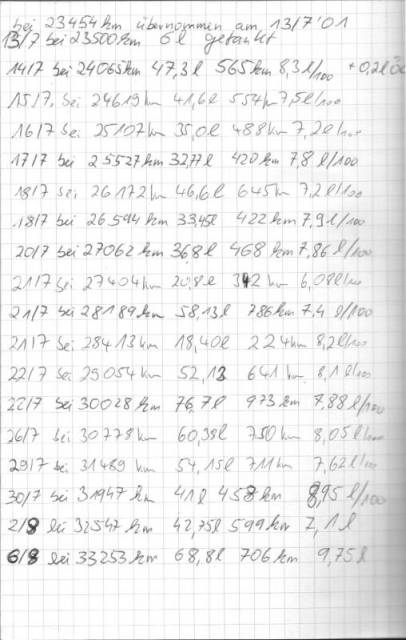 bei 23454 km übernommen am 13/7'01
13/7 bei 23500 km 6 l getankt
14/7 bei 24065 km 47,3 l 565 km 8,3 l/100 + 0,2 l Öl
15/7. bei 24619 km 41,6 l 554 km 7,5 l/100
16/7 bei 25107 km 35,0 l 488 km 7,2 l/100
17/7 bei 25527 km 32,77 l 420 km 7,8 l/100
18/7 bei 26172 km 46,6 l 645 km 7,2 l/100
18/7 bei 26594 km 33,45 l 422 km 7,9 l/100
20/7 bei 27062 km 36,8 l 468 km 7,86 l/100
21/7 bei 27404 km 20,8 l 342 km 6,08 l/100
21/7 bei 28189 km 58,13 l 786 km 7,4 l/100
21/7 bei 28413 km 18,40 l 224 km 8,2 l/100
22/7 bei 29054 km 52,13 641 km 8,1 l/100
22/7 bei 30028 km 76,7 l 973 km 7,88 l/100
26/7 bei 30778 km 60,38 l 750 km 8,05 l/100
29/7 bei 31489 km 54,15 l 711 km 7,62 l/100
30/7 bei 31947 km 41 l 458 km 8,95 l/100
2/8 bei 32547 km 42,75 l 599 km 7,1 l
6/8 bei 33253 km 68,8 l 706 km 9,75 l